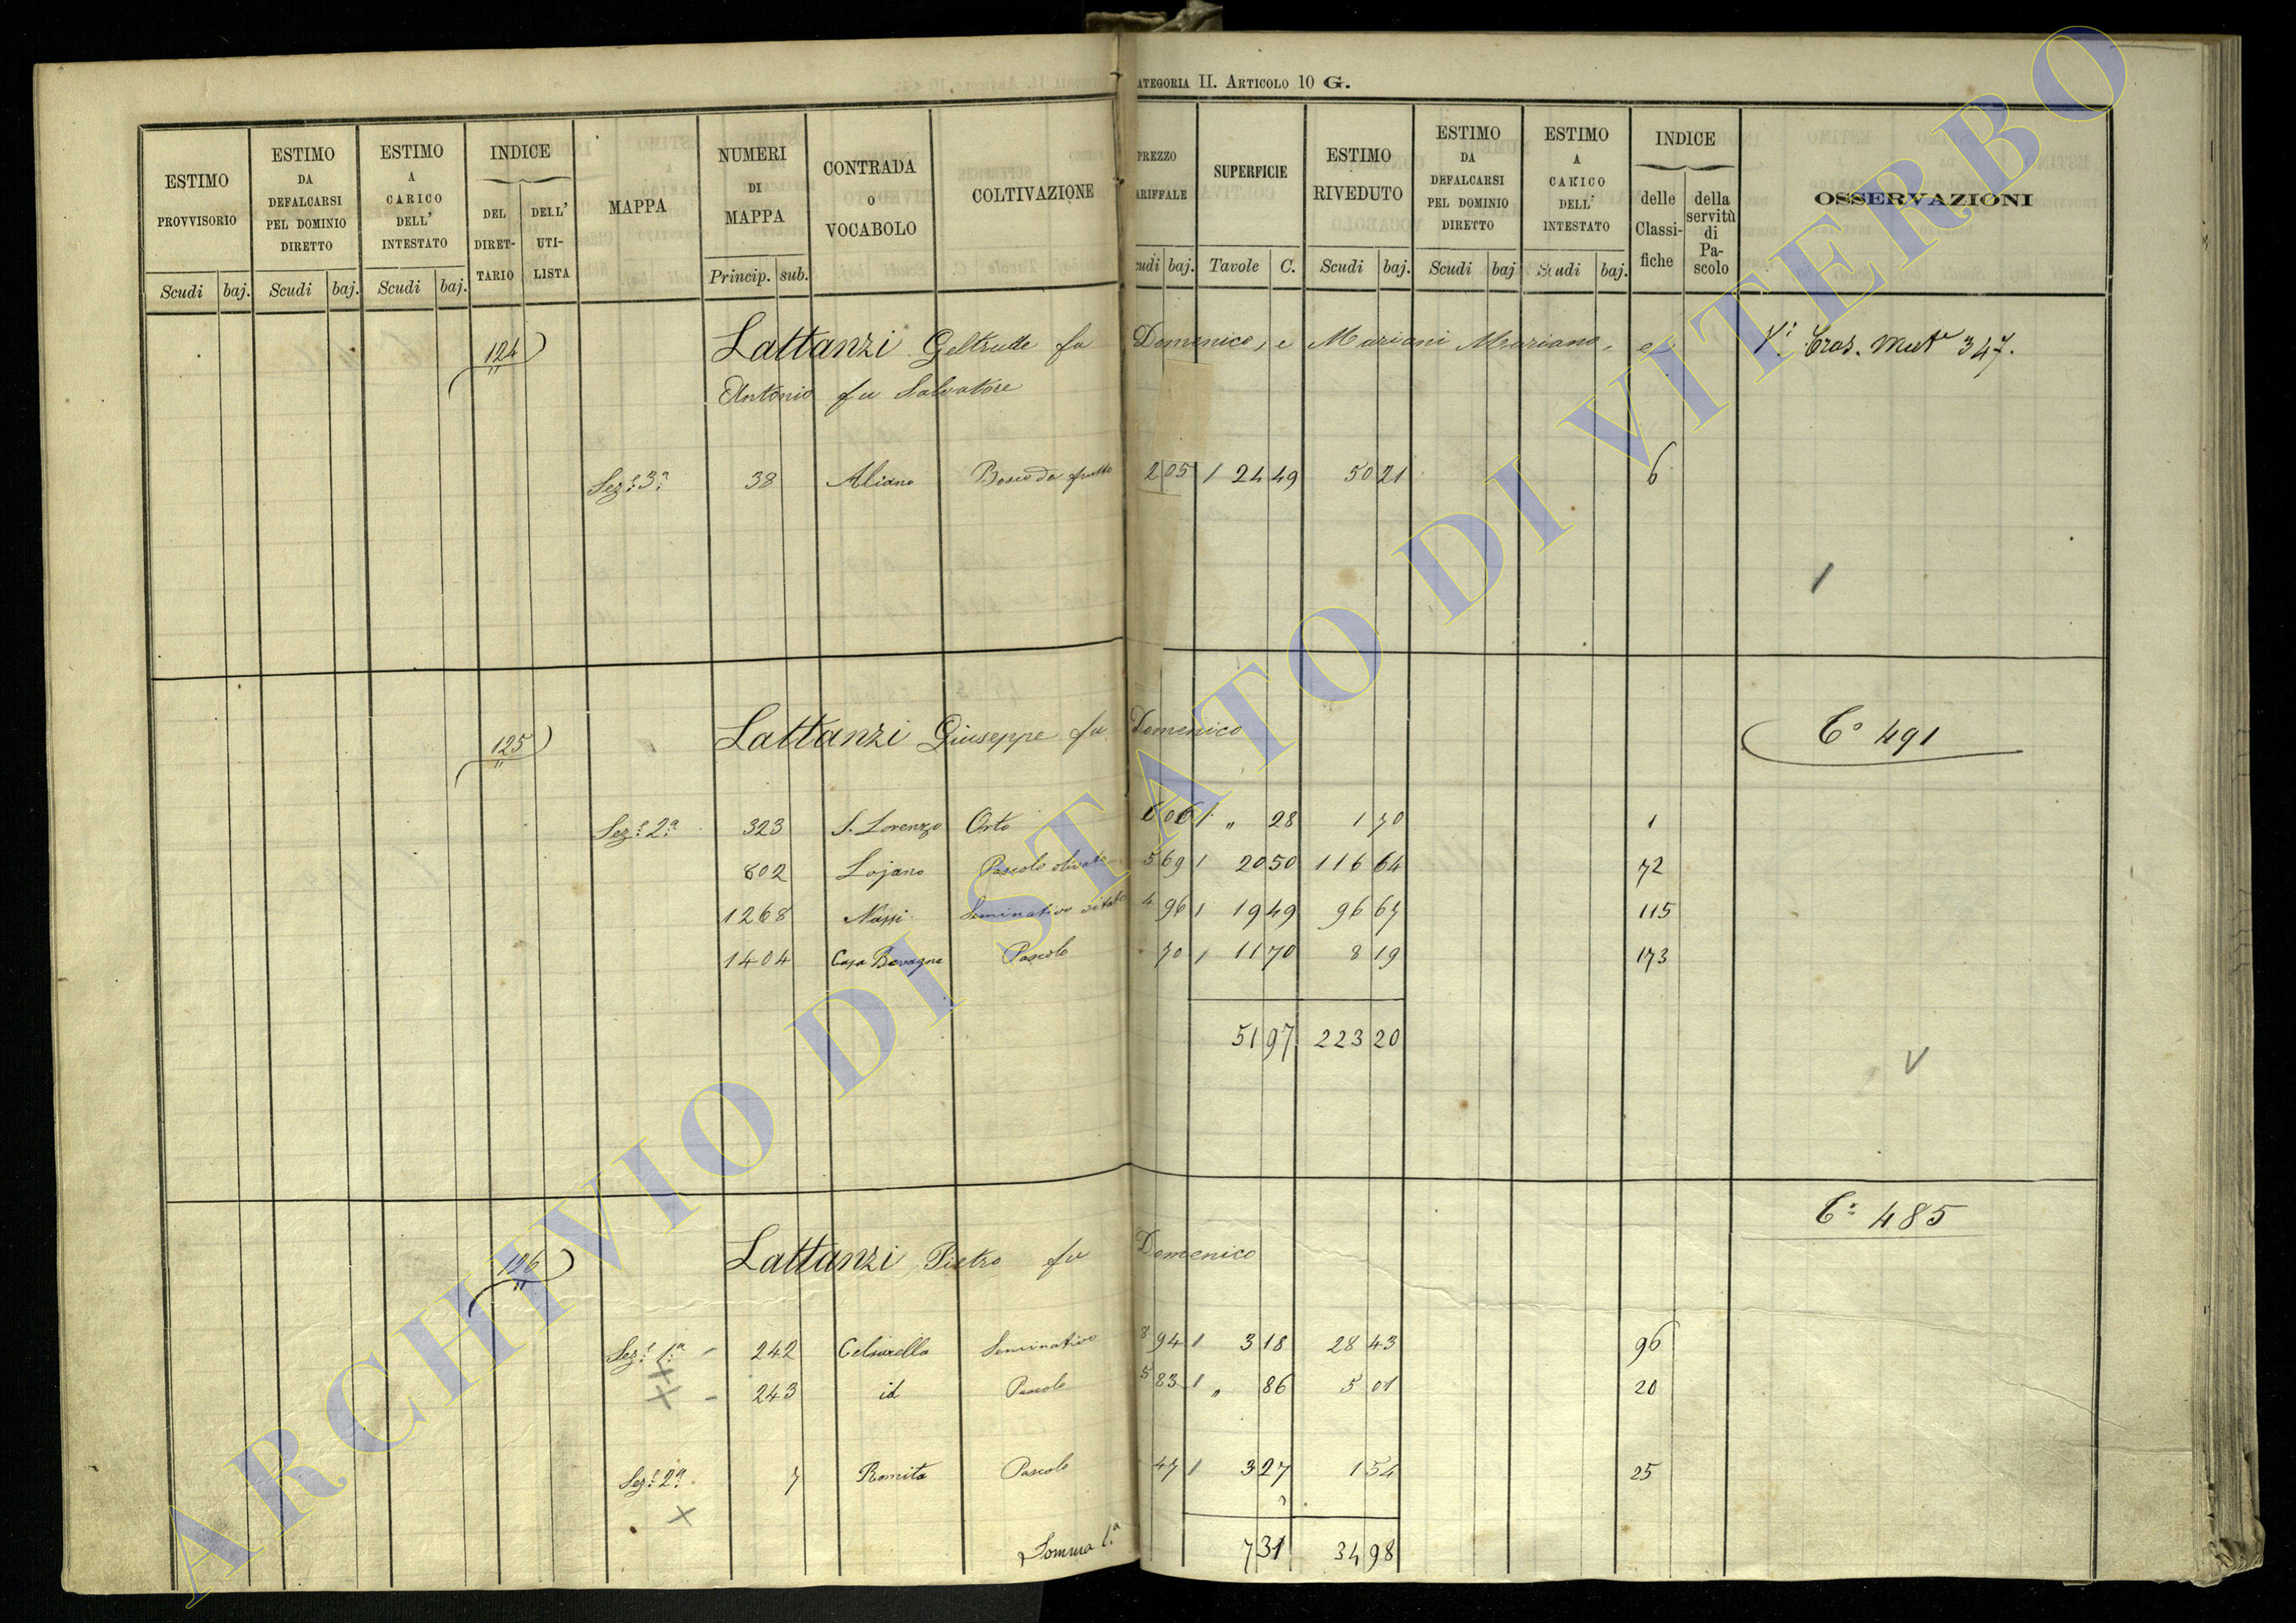 ATEGORIA II. ARTICOLO 10 G.
ESTIMO PROVVISORIO
ESTIMO DA DEFALCARSI PEL DOMINIO DIRETTO
ESTIMO A CARICO DELL' INTESTATO
INDICE
DEL DIRET-TARIO
DELL' UTI-LISTA
MAPPA
NUMERI DI MAPPA
CONTRADA O VOCABOLO
COLTIVAZIONE
PREZZO ARIFFALE
SUPERFICIE
ESTIMO RIVEDUTO
ESTIMO DA DEFALCARSI PEL DOMINIO DIRETTO
ESTIMO A CARICO DELL' INTESTATO
INDICE
delle Classi-fiche
della servitù di Pa-scolo
OSSERVAZIONI
Scudi baj. Scudi baj. Scudi baj. Princip. sub. udi baj. Tavole C. Scudi baj. Scudi baj Scudi baj.
124 Lattanzi Geltrude fu Domenico, e Mariani Mariano, e Mut 347.
Antonio fu Salvatore
Sez.e 3.a 38 Aliano Bosco da frutto 2 05 / 24 49 50 21 6
/
125 Lattanzi Giuseppe fu Domenico C.o 491
Sez.e 2.a 323 S. Lorenzo Orto 6 06 / " 28 1 70 1
802 Lojano Pascolo olivato 5 69 / 20 50 116 64 72
1268 Seminativo vitato 4 96 / 19 49 96 67 115
1404 Casa Bevagna Pascolo 70 / 11 70 8 19 173
51 97 223 20
V
C.o 485
126 Lattanzi Pietro fu Domenico
Sez.e 1.a - 242 Celsarella Seminativo 8 94 / 3 18 28 43 96
X
X - 243 id Pascolo 5 83 / " 86 5 01 20
Sez.e 2.a 7 Romita Pascolo 47 / 3 27 1 54 25
X
Somma l.a 7 31 34 98
ARCHIVIO DI STATO DI VITERBO